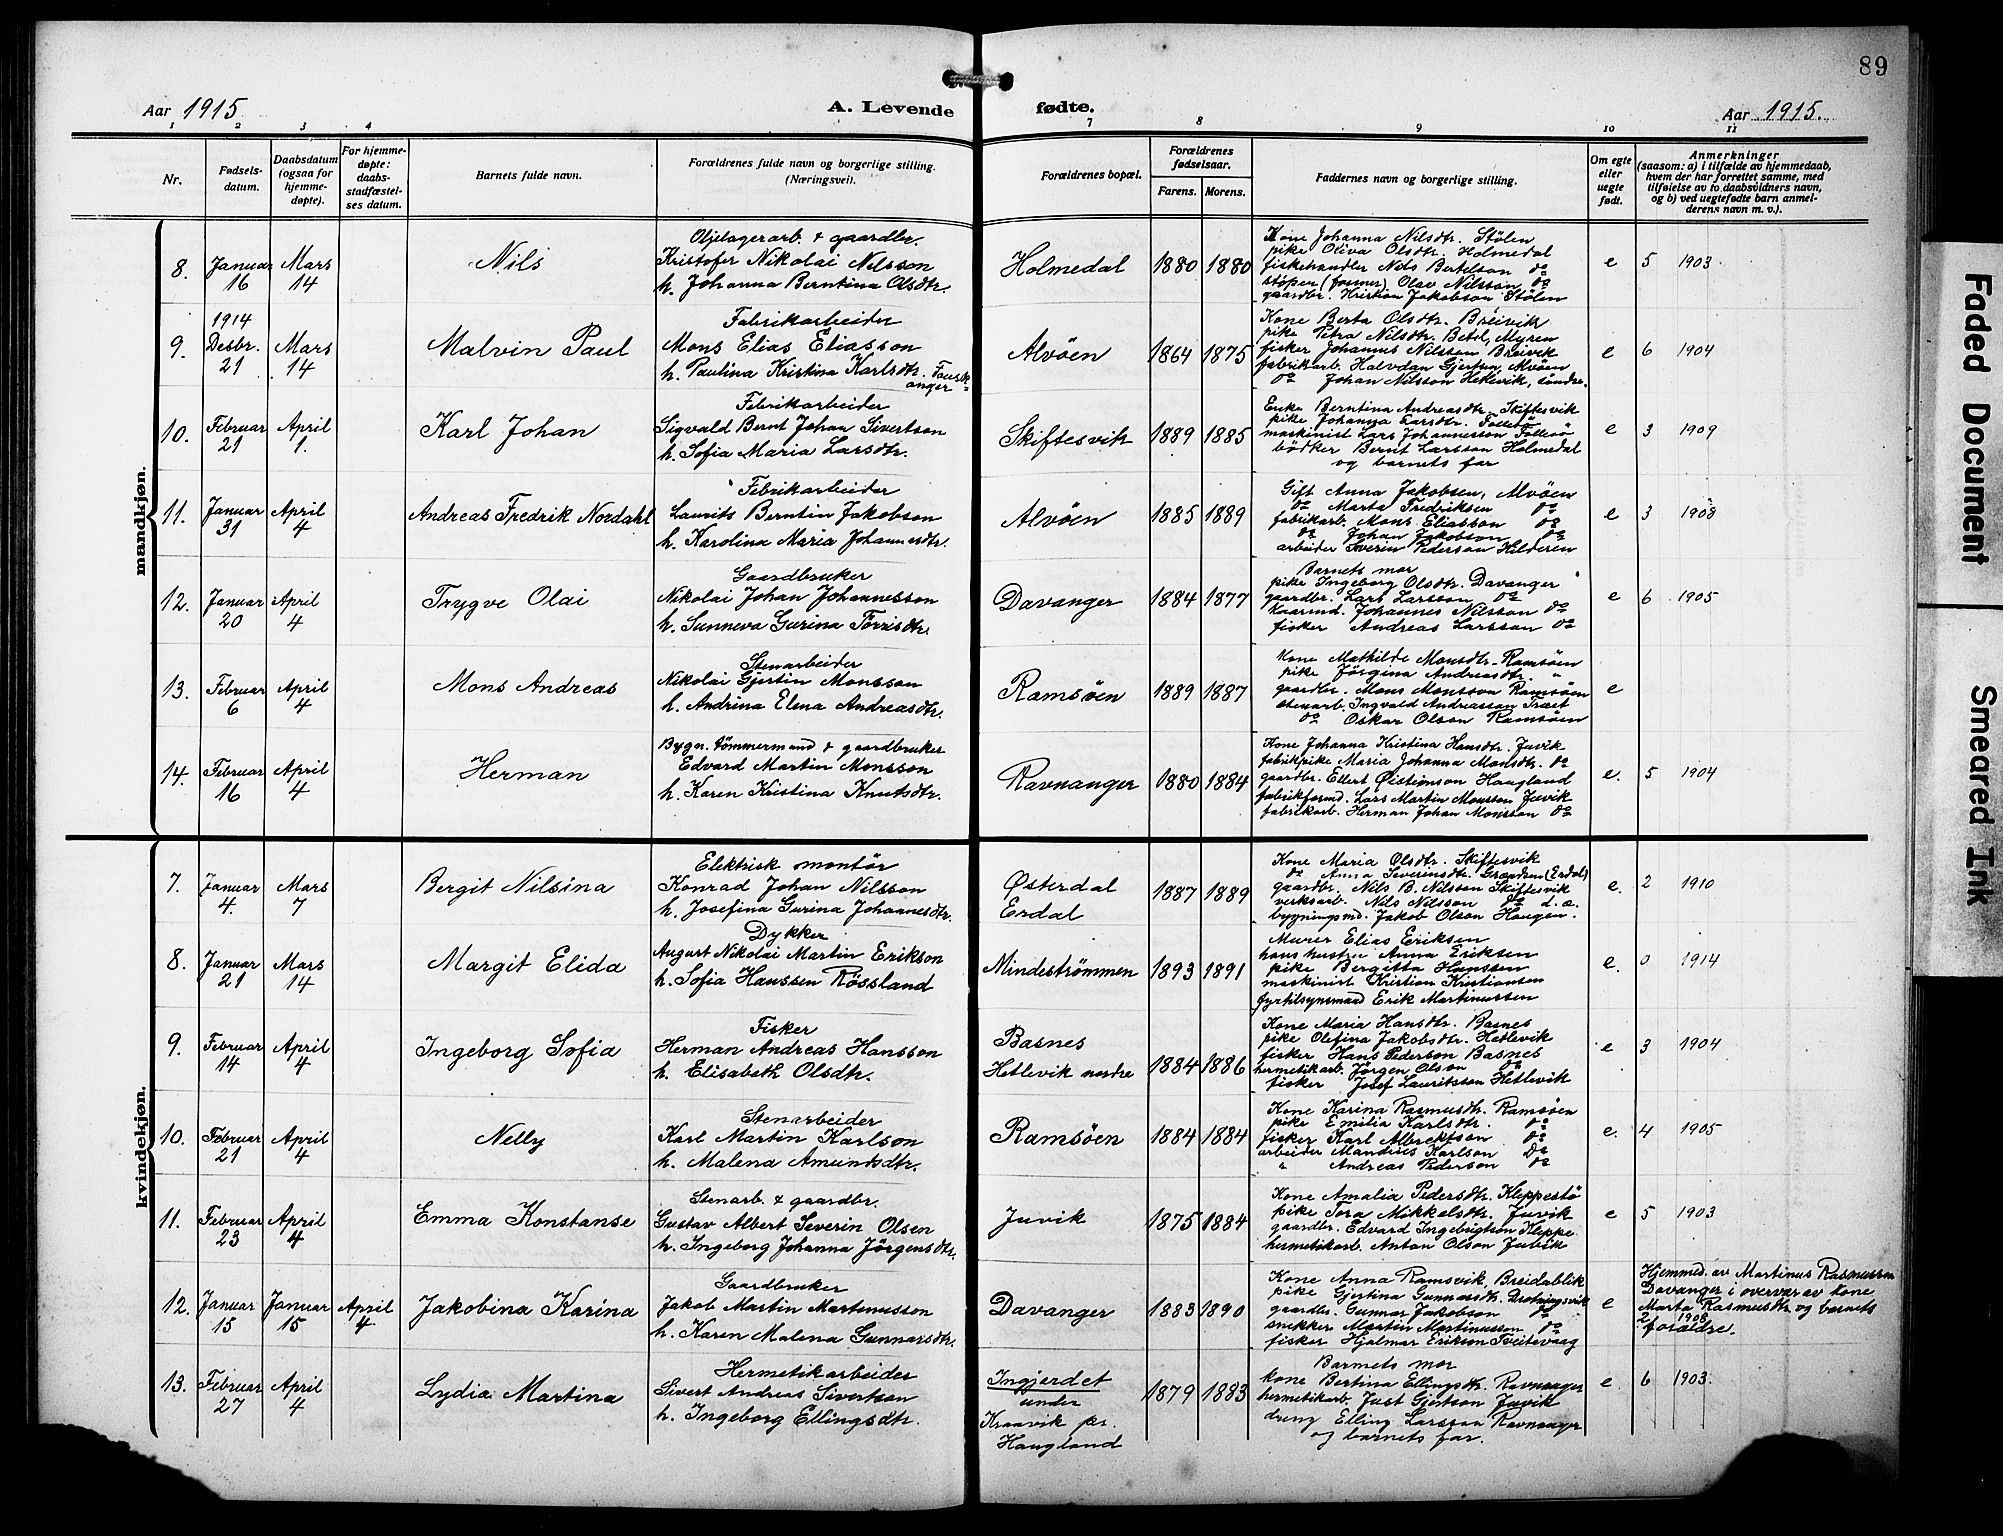 89
Aar 1915
A. Levende
fødte.
Aar 1915.
1 2 3 4 7 8 9 10 11
Nr.
Fødsels-
datum.
Daabsdatum
(ogsaa for
hjemme-
døpte).
For hjemme-
døpte:
daabs-
stadfæstel-
ses datum.
Barnets fulde navn.
Forældrenes fulde navn og borgerlige stilling.
(Næringsvei).
Forældrenes bopæl.
Forældrenes
fødselsaar.
Farens. Morens.
Faddernes navn og borgerlige stilling.
Om egte
eller
uegte
født.
Anmerkninger
(saasom: a) i tilfælde av hjemmedaab,
hvem der har forrettet samme, med
tilføielse av to daabsvidners navn,
og b) ved uegtefødte barn anmel-
derens navn m. v.).
mandkjøn.
8.
Januar
16
Mars
14
Nils
Oljelagerarb. & gaardbr.
Kristofer Nikolai Nilsson
h. Johanna Berntina Olsdtr.
Holmedal
1880 1880
Kone Johanna Nilsdtr. Stølen
pike Oliva Olsdtr. Holmedal
fiskehandler Nils Bertelson do
støper (former) Olav Nilsson do
gaardbr. Kristian Jakobson Stølen
e
5 1903
9.
1914
Desbr.
21
Mars
14
Malvin Paul
Fabrikarbeider
Mons Elias Eliasson
h. Paulina Kristina Karlsdtr. Fausk-
anger
Alvøen
1864 1875
Kone Berta Olsdtr. Breivik
pike Petra Nilsdtr. Betel, Myren
fisker Johannes Nilsson Breivik
fabrikarb. Halvdan Gjertsen, Alvøen
do Johan Nilsson Hetlevik, søndre.
e
6 1904
10.
Februar
21
April
1.
Karl Johan
Febrikarbeider
Sigvald Bernt Johan Sivertson
h. Sofia Maria Larsdtr.
Skiftesvik
1889 1885
Enke Berntina Andreasdtr. Skiftesvik
pike Johanna Larsdtr. Follesø
maskinist Lars Johannesson Follesø
bødker Bernt Larsson Holmedal
og barnets far
e
3 1909
11.
Januar
31
April
4
Andreas Fredrik Nordahl
Febrikarbeider
Laurits Berntin Jakobson
h. Karolina Maria Johannesdtr.
Alvøen
1885 1889
Gift Anna Jakobsen, Alvøen
do Marta Fredriksen do
fabrikarb. Mons Eliasson do
do Johan Jakobson do
arbeider Sverin Pederson Hilderen
e
3 1908
12.
Januar
20
April
4
Trygve Olai
Gaardbruker
Nikolai Johan Johannesson
h. Sunneva Gurina Torrisdtr.
Davanger
1884 1877
Barnets mor
pike Ingeborg Olsdtr. Davanger
gaardbr. Lars Larsson do
Kaarmd. Johannes Nilsson do
fisker Andreas Larsson do
e
6 1905
13.
Februar
6
April
4
Mons Andreas
Stenarbeider
Nikolai Gjertin Monsson
h. Andrina Elena Andreasdtr.
Ramsøen
1889 1887
Kone Mathilde Monsdtr. Ramsøen
pike Jørgina Andreasdtr. "
gaardbr. Mons Monsson Ramsøen
stenarb. Ingvald Andreasson Træet
do Oskar Olson Ramsøen
e
14.
Februar
16
April
4
Herman
Bygn. tømmermand & gaardbruker
Edvard Martin Monsson
h. Karen Kristina Knutsdtr.
Ravnanger
1880 1884
Kone Johanna Kristina Hansdtr. Juvik
fabrikpike Maria Johanna Monsdtr. do
gaardbr. Ellert Øistionson Haugland
fabrikformd. Lars Martin Monsson Juvik
fabrikarb. Herman Johan Monsson do
e.
5 1904
kvindekjøn.
7.
Januar
4.
Mars
7
Bergit Nilsina
Elektrisk montør
Konrad Johan Nilsson
h. Josefina Gurina Johannesdtr.
Østerdal
Erdal
1887 1889
Kone Maria Olsdtr. Skiftesvik
do Anna Severinsdtr. (Erdal)
gaardbr. Nils B. Nilsson Skiftesvik
verksarb. Nils Nilsson do d. a.
bygningsmd. Jakob Olson Haugen.
e.
2 1910
8.
Januar
21
Mars
14
Margit Elida
Dykker
August Nikolai Martin Erikson
h. Sofia Hanssen Røssland
Mindestrømmen
1893 1891
Murer Elias Eriksen
hans hustru Anna Eriksen
pike Bergitta Hanssen
maskinist Kristian Kristiansen
fyrtilsynsmand Erik Martinussen
e.
0 1914
9.
Februar
14
April
4
Ingeborg Sofia
Fisker
Herman Andreas Hansson
h. Elisabeth Olsdtr.
Basnes
Hetlevik nordre
1884 1886
Kone Maria Hansdtr. Basnes
pike Olefina Jakobsdtr. Hetlevik
fisker Hans Pederson Basnes
hermetikarb. Jörgen Olson do
fisker Josef Lauritsson Hetlevik
e
3 1904
10.
Februar
21
April
4
Nelly
Stenarbeider
Karl Martin Karlson
h. Malena Amundsdtr.
Ramsøen
1884 1884
Kone Karina Rasmusdtr. Ramsøen
pike Emilia Karlsdtr. do
fisker Karl Albrektson do
arbeider Mandius Karlson Do
" Andreas Pederson do
e.
4 1905
11.
Februar
23
April
4
Emma Konstanse
Stenarb. & gaardbr.
Gustav Albert Severin Olsen
h. Ingeborg Johanna Jörgensdtr.
Juvik
1875 1884
Kone Amalia Pedersdtr. Kleppestø
pike Tora Mikkelsdtr. Juvik
gaardbr. Edvard Ingebrigtson Kleppe
hermetikarb. Anton Olson Juvik
e
5 1903
12.
Januar
15
Januar
15
April
4
Jakobina Karina
Gaardbruker
Jakob Martin Martinusson
h. Karen Malena Gunnarsdtr.
Davanger
1883 1890
Kone Anna Ramsvik, Breidablik
pike Gjertina Gunnarsdtr. Drotningsvik
gaardbr. Gunnar Jakobson do
snekker Martin Martinusson do
fisker Hjalmar Erikson Tveitevaag
e
Hjemmed. av Martinus Rasmussen
Davanger i overvar av kone
Marta Rasmusdtr og barnets
forældre.
2 1908
13.
Februar
27
April
4
Lydia Martina
Hermetikarbeider
Sivert Andreas Sivertson
h. Ingeborg Ellingsdtr.
Ingjerdet
under
Kraavik pr.
Haugland
1879 1883
Barnets mor
kone Bertina Ellingsdtr. Ravnanger
hermetikarb. Just Gjertson Juvik
dreng Elling Larsson Ravnanger
og barnets far.
e.
6 1903.
Faded Document
Smeared Ink